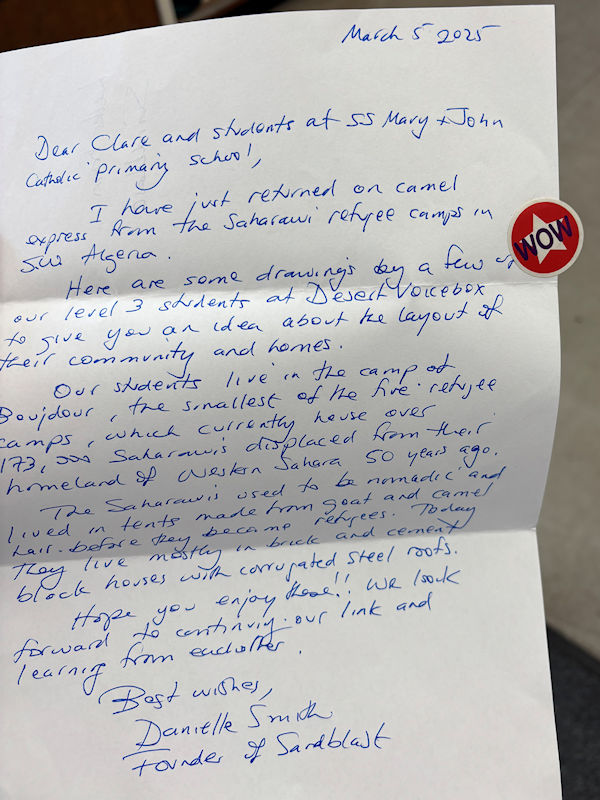 March 5 2025
Dear Clare and students at SS Mary + John
Catholic primary school,
I have just returned on camel
express from the Saharawi refugee camps in
SW Algeria.
WOW
Here are some drawings by a few of
our level 3 students at Desert Voicebox
to give you an idea about the layout of
their community and homes.
Our students live in the camp of
Boujdour, the smallest of the five refugee
camps, which currently house over
173,000 Saharawis displaced from their
homeland of Western Sahara 50 years ago.
The Saharawis used to be nomadic and
lived in tents made from goat and camel
hair before they became refugees. Today
they live mostly in brick and cement
block houses with corrugated steel roofs.
Hope you enjoy these!! We look
forward to continuing our link and
learning from eachother.
Best wishes,
Danielle Smith
Founder of Sandblast